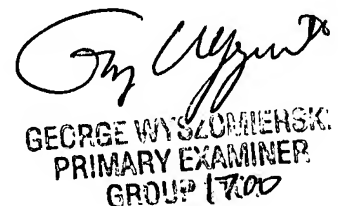 GEORGE WYSZOMIERSKI
PRIMARY EXAMINER
GROUP 1700